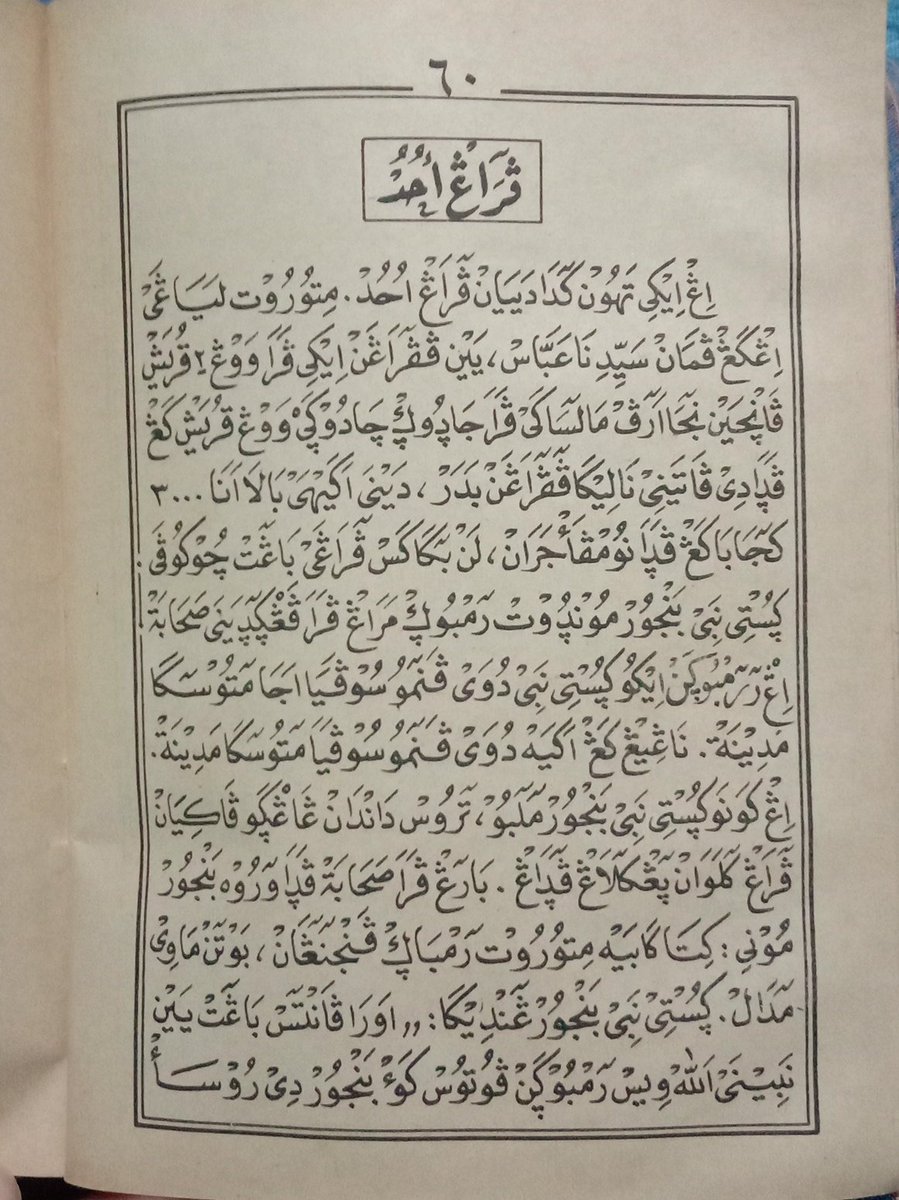 ٦٠
ڤَرَاڠْ أُحُدْ
اِڠْ اِيْكِيْ تَهُونْ كَدَادَيْيَانْ ڤَرَاڠْ اُحُدْ. مِتُوْرُوْتْ لَيَاڠَىْ
اِڠْكَڠْ ڤَمَانْ سَيِّدِنَا عَبَّاسْ، يَيْنْ ڤَڤْرَاڠَنْ اِيْكِيْ ڤَرَا وَوْڠ٢ قُرَيْشْ
ڤَانْچَيْنْ نِجَا اَرَڤْ مَالَسَاكَىْ ڤَرَا جَاڊُوْكْ چَادُوْكَىْ وَوْڠْ قُرَيْشْ كَڠْ
ڤَڊَا دِيْ ڤَاتَيْنِيْ نَالِيْكَا ڤَڤْرَاڠَنْ بَدَرْ، دَيْنَىْ اَكَيْهَىْ بَالَا اَنَا ...٣
كَجَابَا كَڠْ ڤَڊَا نُوْمْڤَأْ جَرَانْ، لَنْ بَكَاكَسْ ڤَرَاڠَىْ بَاڠَتْ چُوْكُوْڤَىْ.
كُسْتِيْ نَبِيْ بَنْجُوْرْ مُوْنْڊُوْتْ رَمْبُوكْ مَرَاڠْ ڤَرَا ڤَڠْكَڊَيْنَىْ صَحَابَةْ
اِڠْ رَرَمْبُوكَنْ اِيْكُوْ كُسْتِيْ نَبِيْ دُوَىْ ڤَنَمُوْ سُوْڤَيَا اَجَا مَتُوْ سَكَا
مَدِيْنَةْ. نَاڠِيْڠْ كَڠْ اَكَيْهْ دُوَىْ ڤَنَمُوْ سُوْڤَيَا مَتُوْ سَكَا مَدِيْنَةْ.
اِڠْ كَونَوْ كُسْتِيْ نَبِيْ بَنْجُوْرْ مْلَبُوْ، تَرُوْسْ دَانْدَانْ ڠَاڠْكَوْ ڤَاكِيَانْ
ڤَرَاڠْ كَلَاوَانْ يَڠْكَلَاڠْ ڤَڊَاڠْ. بَارَڠْ ڤَرَا صَحَابَةْ ڤَڊَا وَرُوْهْ بَنْجُوْرْ
مُوْنِيْ: كِيْتَا كَابَيْهْ مِتُوْرُوْتْ رَمْبَاكْ ڤَنْجَنَڠَانْ، بَوْتَنْ مَاوِيْ
مَدَالْ. كُسْتِيْ نَبِيْ بَنْجُوْرْ ڠَنْدِيْكَا: ,, اَوْرَا ڤَانْتَسْ بَاڠَتْ يَيْنْ
نَبِيْنَىْ اَللّٰهْ وِيْسْ رَمْبُوْكَنْ ڤُوْتُوْسْ كَوْءْ بَنْجُوْرْ دِيْ رُوْسَأْ